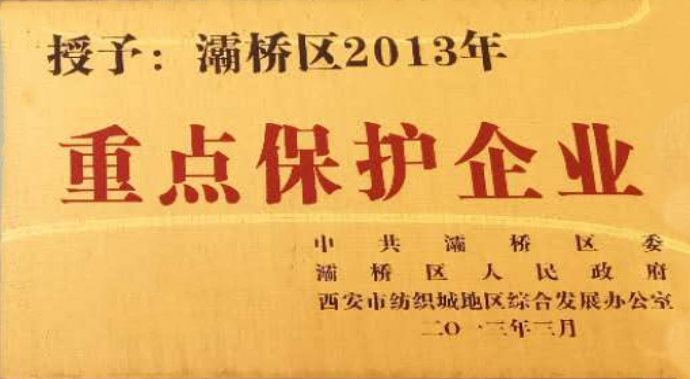 授予：灞桥区2013年
重点保护企业
中共灞桥区委
灞桥区人民政府
西安市纺织城地区综合发展办公室
二〇一三年三月